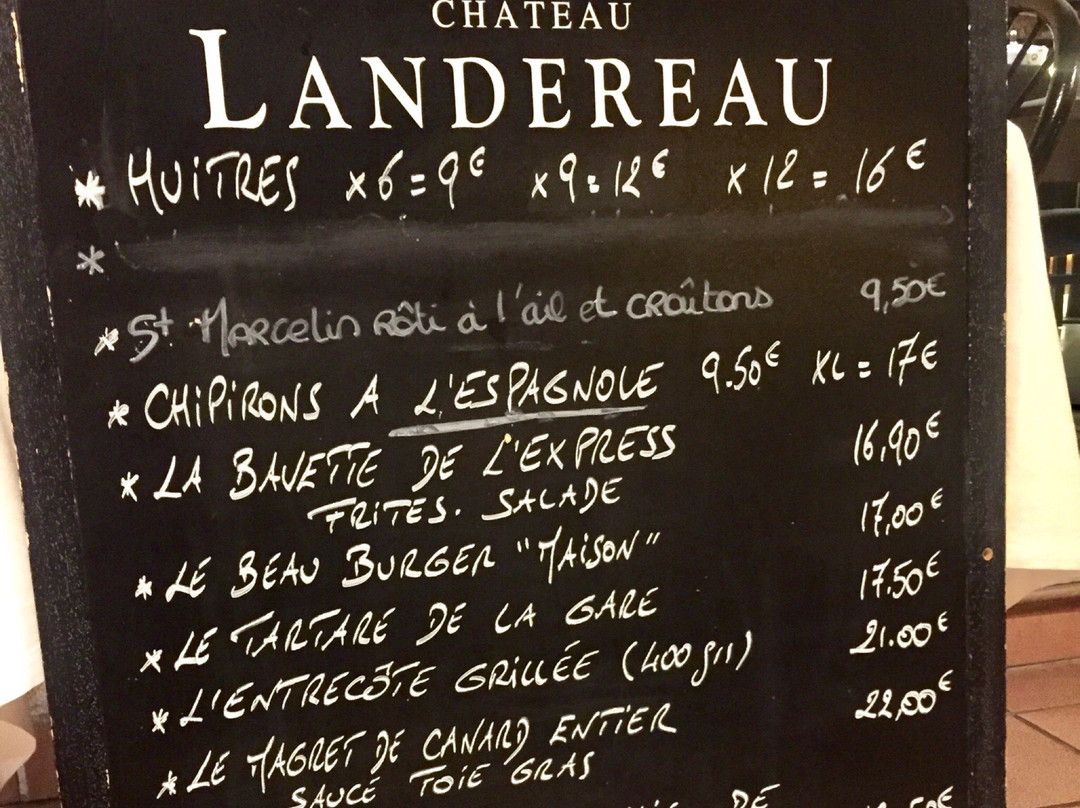 CHATEAU
LANDEREAU
* HUITRES x6=9€ x9=12€ x12=16€
*
* St Marcelin rôti à l'ail et croûtons 9,50€
* CHIPIRONS A L'ESPAGNOLE 9.50€ XL=17€
* LA BAVETTE DE L'EXPRESS 16,90€
FRITES. SALADE
* LE BEAU BURGER "MAISON" 17,00€
* LE TARTARE DE LA GARE 17.50€
* L'ENTRECÔTE GRILLÉE (400 grs) 21.00€
* LE MAGRET DE CANARD ENTIER 22,00€
SAUCE FOIE GRAS
DE